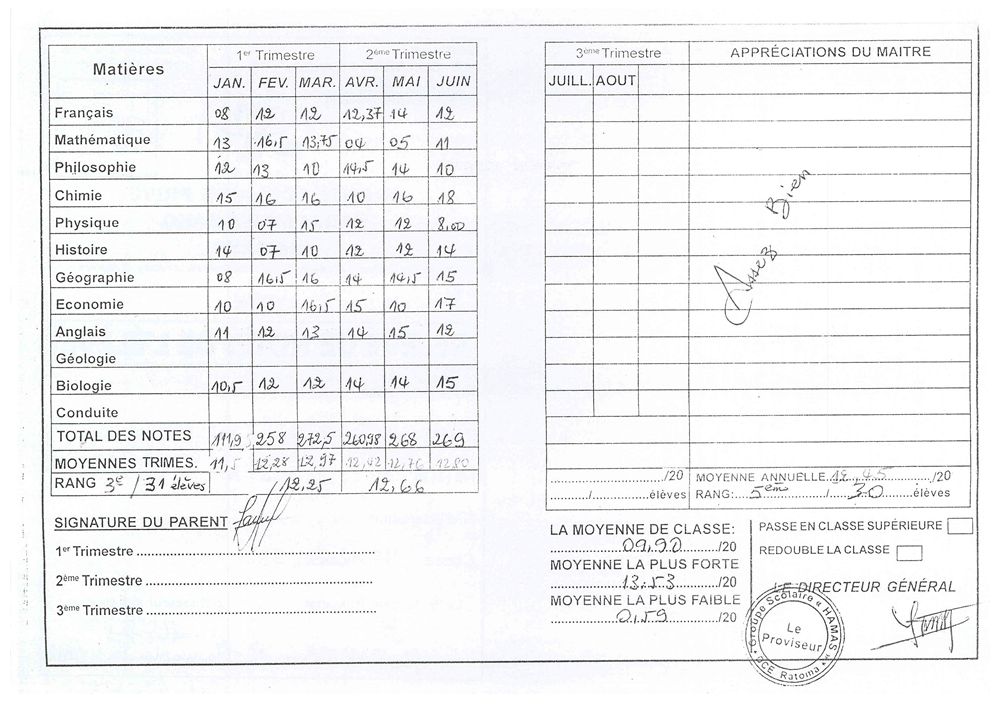 Matières 1er Trimestre 2ème Trimestre
JAN. FEV. MAR. AVR. MAI JUIN
Français 08 12 12 12,37 14 12
Mathématique 13 16,5 13,75 04 05 11
Philosophie 12 13 10 14,5 14 10
Chimie 15 16 16 10 16 18
Physique 10 07 15 12 12 8,00
Histoire 14 07 10 12 12 14
Géographie 08 16,5 16 14 14,5 15
Economie 10 10 16,5 15 10 17
Anglais 11 12 13 14 15 12
Géologie
Biologie 10,5 12 12 14 14 15
Conduite
TOTAL DES NOTES 111,9 258 272,5 260,98 268 269
MOYENNES TRIMES. 11,5 12,28 12,97 12,42 12,76 12,80
RANG 3e / 31 élèves 12,25 12,66
SIGNATURE DU PARENT
1er Trimestre
2ème Trimestre
3ème Trimestre
3ème Trimestre APPRÉCIATIONS DU MAITRE
JUILL. AOUT
Assez Bien
/20 MOYENNE ANNUELLE 12,45 /20
/ élèves RANG: 5em / 30 élèves
LA MOYENNE DE CLASSE:
09,90 /20
MOYENNE LA PLUS FORTE
13,53 /20
MOYENNE LA PLUS FAIBLE
0,59 /20
PASSE EN CLASSE SUPÉRIEURE
REDOUBLE LA CLASSE
LE DIRECTEUR GÉNÉRAL
Groupe Scolaire « HAMAS »
Le
Proviseur
DCE Ratoma